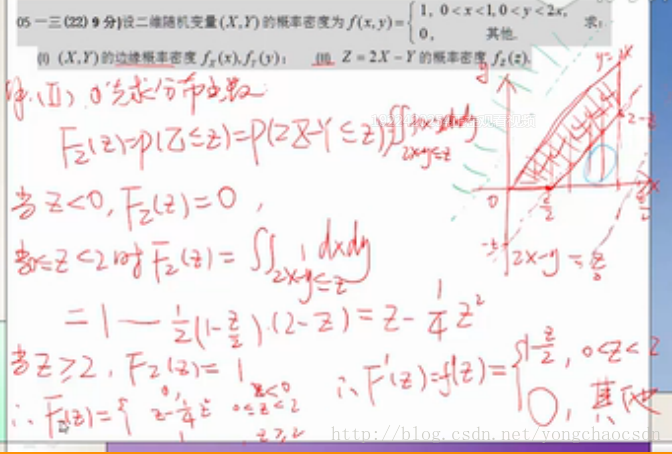 05一三(22) 9分)设二维随机变量(X,Y)的概率密度为f(x,y)={1, 0<x<1,0<y<2x, 求:
0, 其他.
(I) (X,Y)的边缘概率密度 f_X(x),f_Y(y); (II) Z=2X-Y的概率密度 f_Z(z).
解(II) ①先求分布函数
F_Z(z)=P(Z≤z)=P(2X-Y≤z)=∬ dxdy
2x-y≤z
当z<0, F_Z(z)=0,
当0≤z<2时 F_Z(z)=∬ 1 dxdy
2x-y≤z
=1-1/2(1-z/2)·(2-z)=z-1/4z²
当z≥2, F_Z(z)=1
∴F_Z(z)={0, z<0
z-1/4z² 0≤z<2
1 z≥2
∴F'(z)=f(z)={1-z/2, 0<z<2
0, 其他
y
y=2x
2-z
0
z/2
x
-z
2x-y=z
http://blog.csdn.net/yongchaocsdn